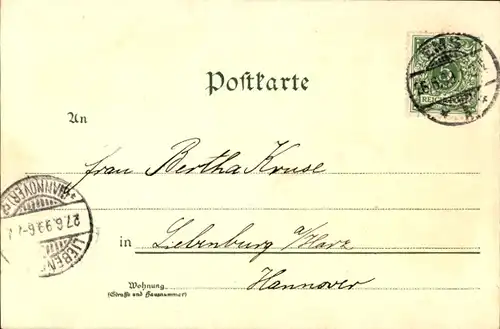 EMS
26.6.99
REICHSPOST
Postkarte
An
Frau Bertha Kruse
HANNOVER
27.6.99
LIEBEN
in Liebenburg a/Harz
Hannover
Wohnung
(Straße und Hausnummer)